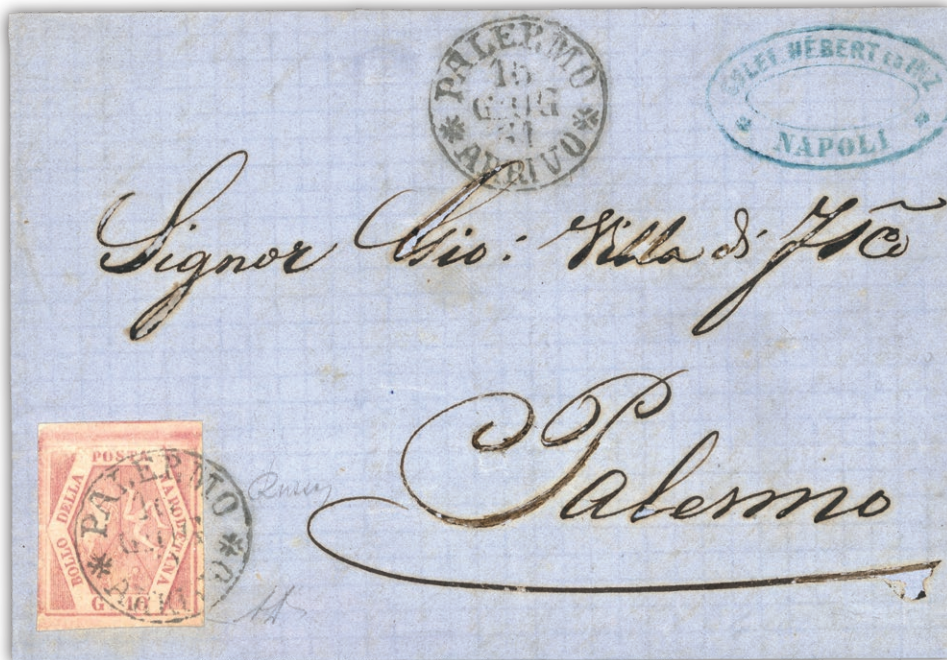 PALERMO
15
GIUG
61
* ARRIVO *
HÉBERT
* NAPOLI *
Signor Gio: Villa di
Palermo
BOLLO DELLA POSTA NAPOLETANA
G 10
PALERMO
* *